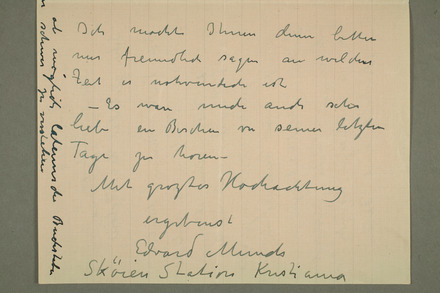 Ich mochte Ihnen dann bitten
mir freundlich sagen an welchem
Zeit es notwendich ist
– Es war mich auch sehr
liebe en Bischen von seiner letzten
Tage zu horen –
Mit grozter Hochachtung
ergebenst
Edvard Munch
Skøien Station Kristiania
ob möglich lateinische Buchstaben
schwer zu